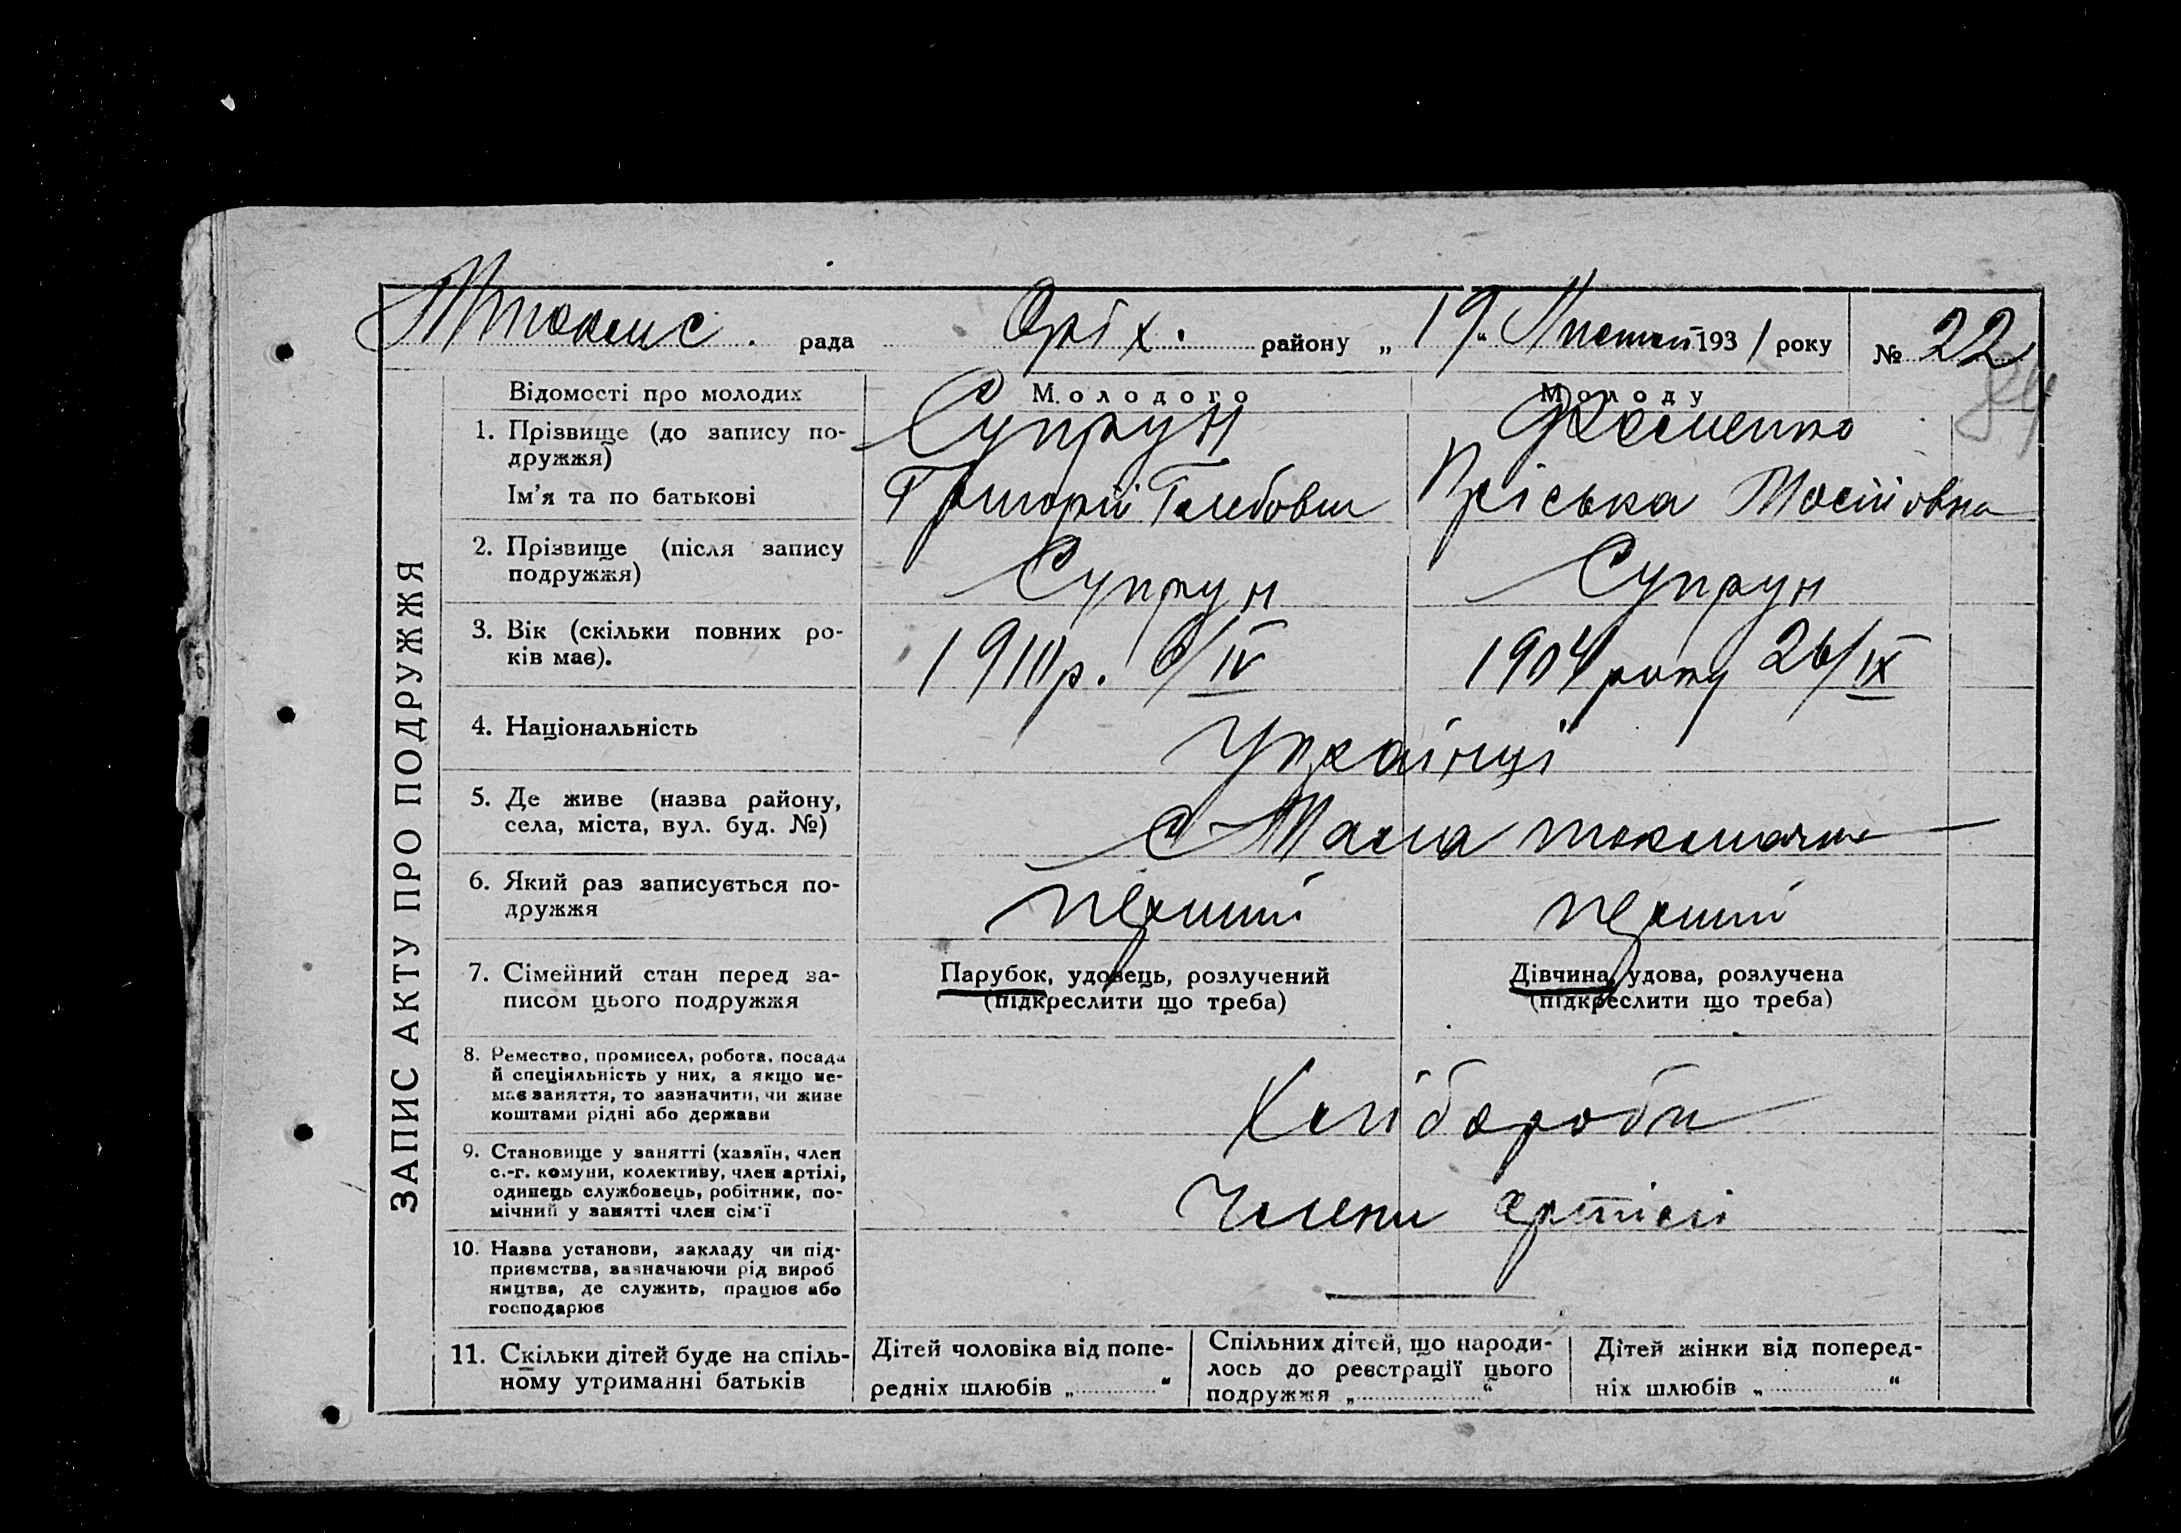 рада Оріх. району „ 19 “ 1931 року № 22
84
ЗАПИС АКТУ ПРО ПОДРУЖЖЯ
Відомості про молодих
Молодого
Молоду
1. Прізвище (до запису по-
дружжя)
Супрун
Ім’я та по батькові
Григорій Глебович
Пріська Мосійовна
2. Прізвище (після запису
подружжя)
Супрун
Супрун
3. Вік (скільки повних ро-
ків має).
1911 р. 6/IV
1904 року 26/IX
4. Національність
Українці
5. Де живе (назва району,
села, міста, вул. буд. №)
С Мала токмачка
6. Який раз записується по-
дружжя
перший
перший
7. Сімейний стан перед за-
писом цього подружжя
Парубок, удовець, розлучений
(підкреслити що треба)
Дівчина, удова, розлучена
(підкреслити що треба)
8. Ремество, промисел, робота, посада
й спеціяльність у них, а якщо не-
має заняття, то зазначити, чи живе
коштами рідні або держави
Хлібороби
9. Становище у занятті (хазяїн, член
с.-г. комуни, колективу, член артілі,
одинець службовець, робітник, по-
мічний у занятті член сім’ї
Члени артілі
10. Назва установи, закладу чи під-
приємства, зазначаючи рід вироб
ництва, де служить, працює або
господарює
11. Скільки дітей буде на спіль-
ному утриманні батьків
Дітей чоловіка від попе-
редніх шлюбів „ “
Спільних дітей, що народи-
лось до реєстрації цього
подружжя „ “
Дітей жінки від поперед-
ніх шлюбів „ “